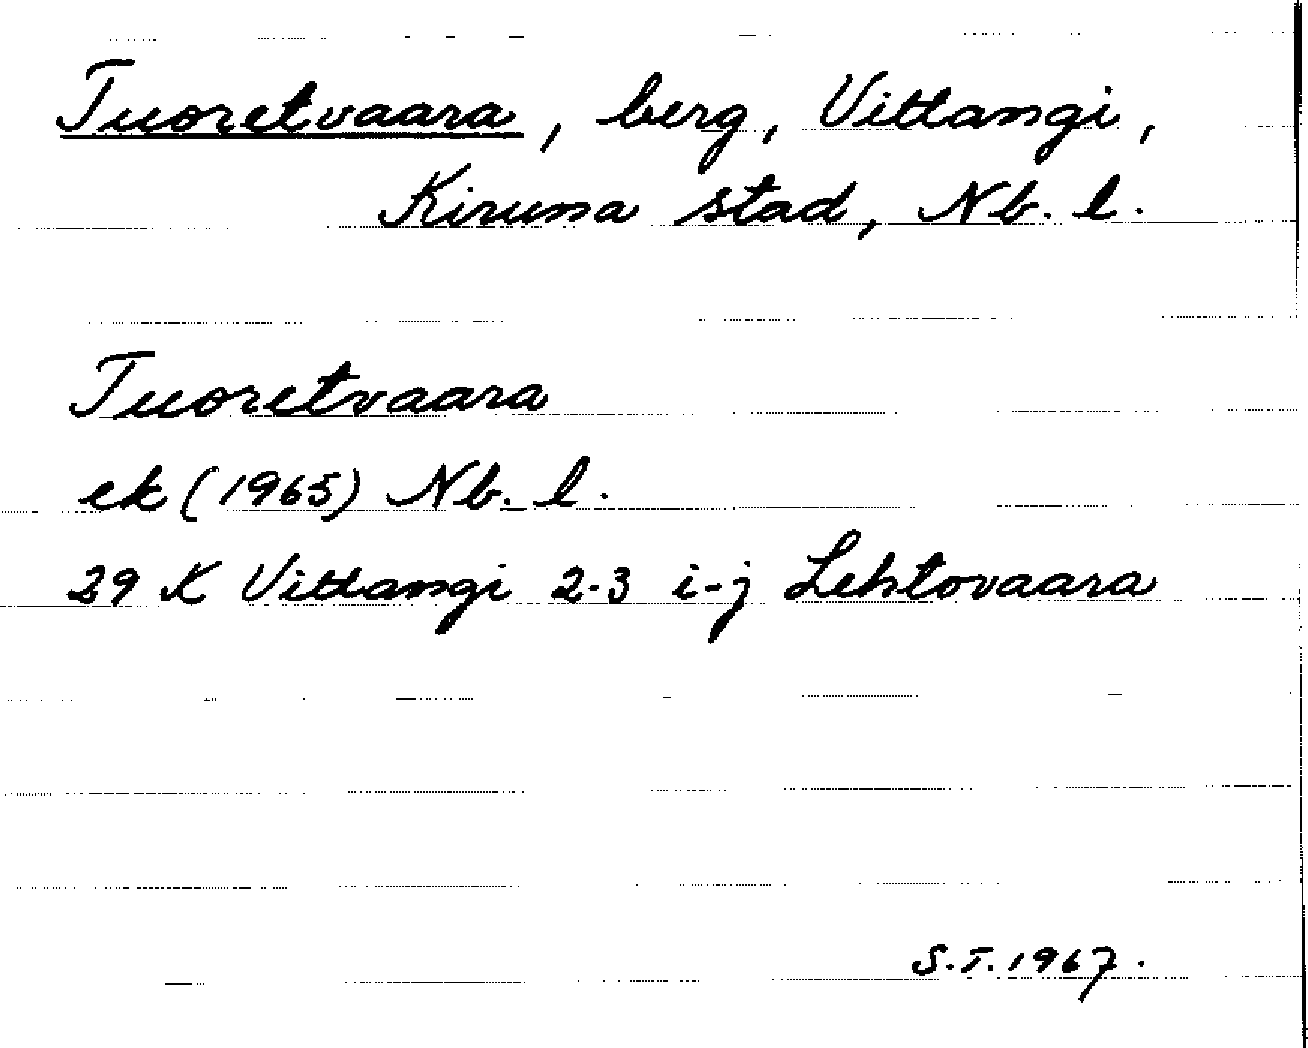 Tuoretvaara, berg, Vittangi,
Kiruna stad, Nb. l.
Tuoretvaara
ek (1965) Nb. l.
29 K Vittangi 2-3 i-j Lehtovaara
S.T. 1967.